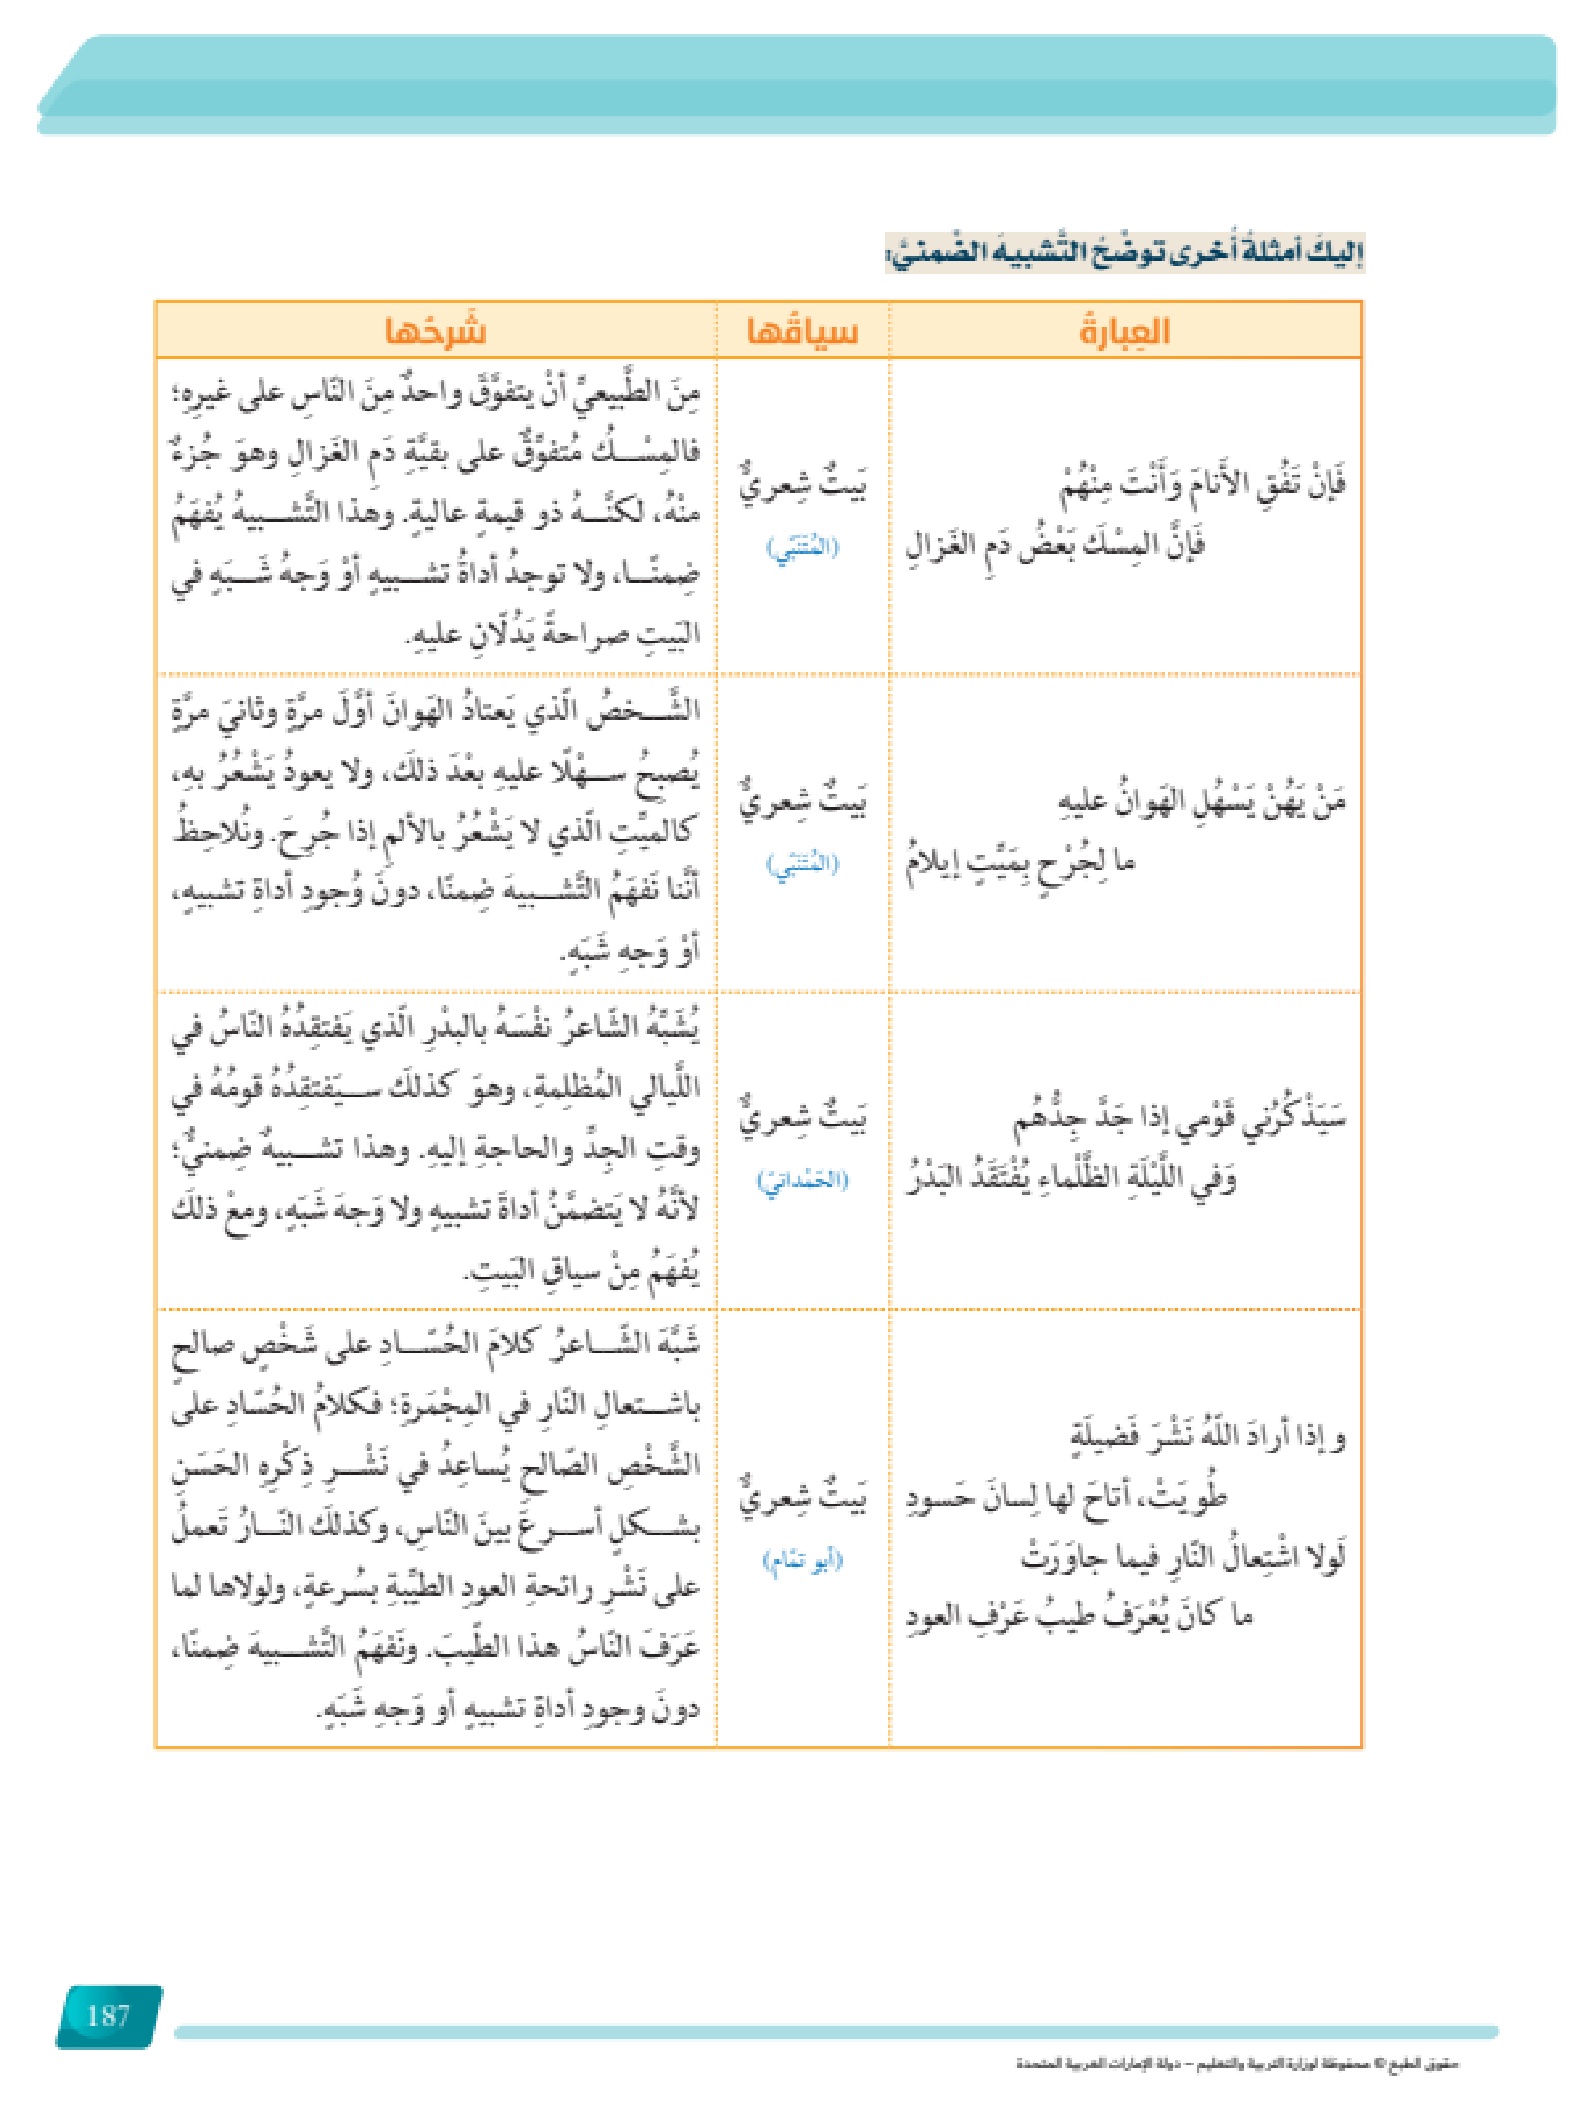 إليكَ أمثلةً أُخرى توضِّحُ التَّشبيهَ الضِّمنيَّ:
العِبارةُ
سياقُها
شَرحُها
فَإنْ تَفُقِ الأَنامَ وَأَنْتَ مِنْهُمْ
فَإنَّ المِسْكَ بَعْضُ دَمِ الغَزالِ
بَيتٌ شِعريٌّ
(المُتَنَبّي)
مِنَ الطَّبيعيِّ أنْ يتفوَّقَ واحدٌ مِنَ النّاسِ على غيرِهِ؛
فالمِسْكُ مُتفوِّقٌ على بقيَّةِ دَمِ الغَزالِ وهوَ جُزءٌ
منْهُ، لكنَّهُ ذو قيمةٍ عاليةٍ. وهذا التَّشبيهُ يُفهَمُ
ضِمنًا، ولا توجدُ أداةُ تشبيهٍ أوْ وَجهُ شَبَهٍ في
البَيتِ صراحةً يَدُلّانِ عليهِ.
مَنْ يَهُنْ يَسْهُلِ الهَوانُ عليهِ
ما لِجُرْحٍ بِمَيِّتٍ إيلامُ
بَيتٌ شِعريٌّ
(المُتَنَبّي)
الشَّخصُ الّذي يَعتادُ الهَوانَ أوَّلَ مرَّةٍ وثانيَ مرَّةٍ
يُصبِحُ سهْلًا عليهِ بعْدَ ذلكَ، ولا يعودُ يَشْعُرُ بهِ،
كالميِّتِ الّذي لا يَشْعُرُ بالألمِ إذا جُرِحَ. ونُلاحِظُ
أنَّنا نَفهَمُ التَّشبيهَ ضِمنًا، دونَ وُجودِ أداةِ تشبيهٍ،
أوْ وَجهِ شَبَهٍ.
سَيَذْكُرُني قَوْمي إذا جَدَّ جِدُّهُم
وَفي اللَّيْلَةِ الظَّلْماءِ يُفْتَقَدُ البَدْرُ
بَيتٌ شِعريٌّ
(الحَمْدانيّ)
يُشَبِّهُ الشّاعرُ نفْسَهُ بالبدْرِ الّذي يَفتقِدُهُ النّاسُ في
اللَّيالي المُظلِمةِ، وهوَ كذلكَ سيَفتقِدُهُ قومُهُ في
وقتِ الجِدِّ والحاجةِ إليهِ. وهذا تشبيهٌ ضِمنيٌّ؛
لأنَّهُ لا يَتضمَّنُ أداةَ تشبيهٍ ولا وَجهَ شَبَهٍ، ومعْ ذلكَ
يُفهَمُ مِنْ سياقِ البَيتِ.
وإذا أرادَ اللّهُ نَشْرَ فَضيلَةٍ
طُويَتْ، أتاحَ لها لِسانَ حَسودِ
لَولا اشْتِعالُ النّارِ فيما جاوَرَتْ
ما كانَ يُعْرَفُ طيبُ عَرْفِ العودِ
بَيتٌ شِعريٌّ
(أبو تمّام)
شَبَّهَ الشّاعرُ كلامَ الحُسّادِ على شَخْصٍ صالحٍ
باشتعالِ النّارِ في المِجْمَرةِ؛ فكلامُ الحُسّادِ على
الشَّخْصِ الصّالحِ يُساعِدُ في نَشْرِ ذِكْرِهِ الحَسَنِ
بشكلٍ أسرعَ بينَ النّاسِ، وكذلكَ النّارُ تَعملُ
على نَشْرِ رائحةِ العودِ الطيِّبةِ بسُرعةٍ، ولولاها لما
عَرَفَ النّاسُ هذا الطّيبَ. ونَفهَمُ التَّشبيهَ ضِمنًا،
دونَ وجودِ أداةِ تشبيهٍ أو وَجهِ شَبَهٍ.
187
حقوق الطبع © محفوظة لوزارة التربية والتعليم – دولة الإمارات العربية المتحدة